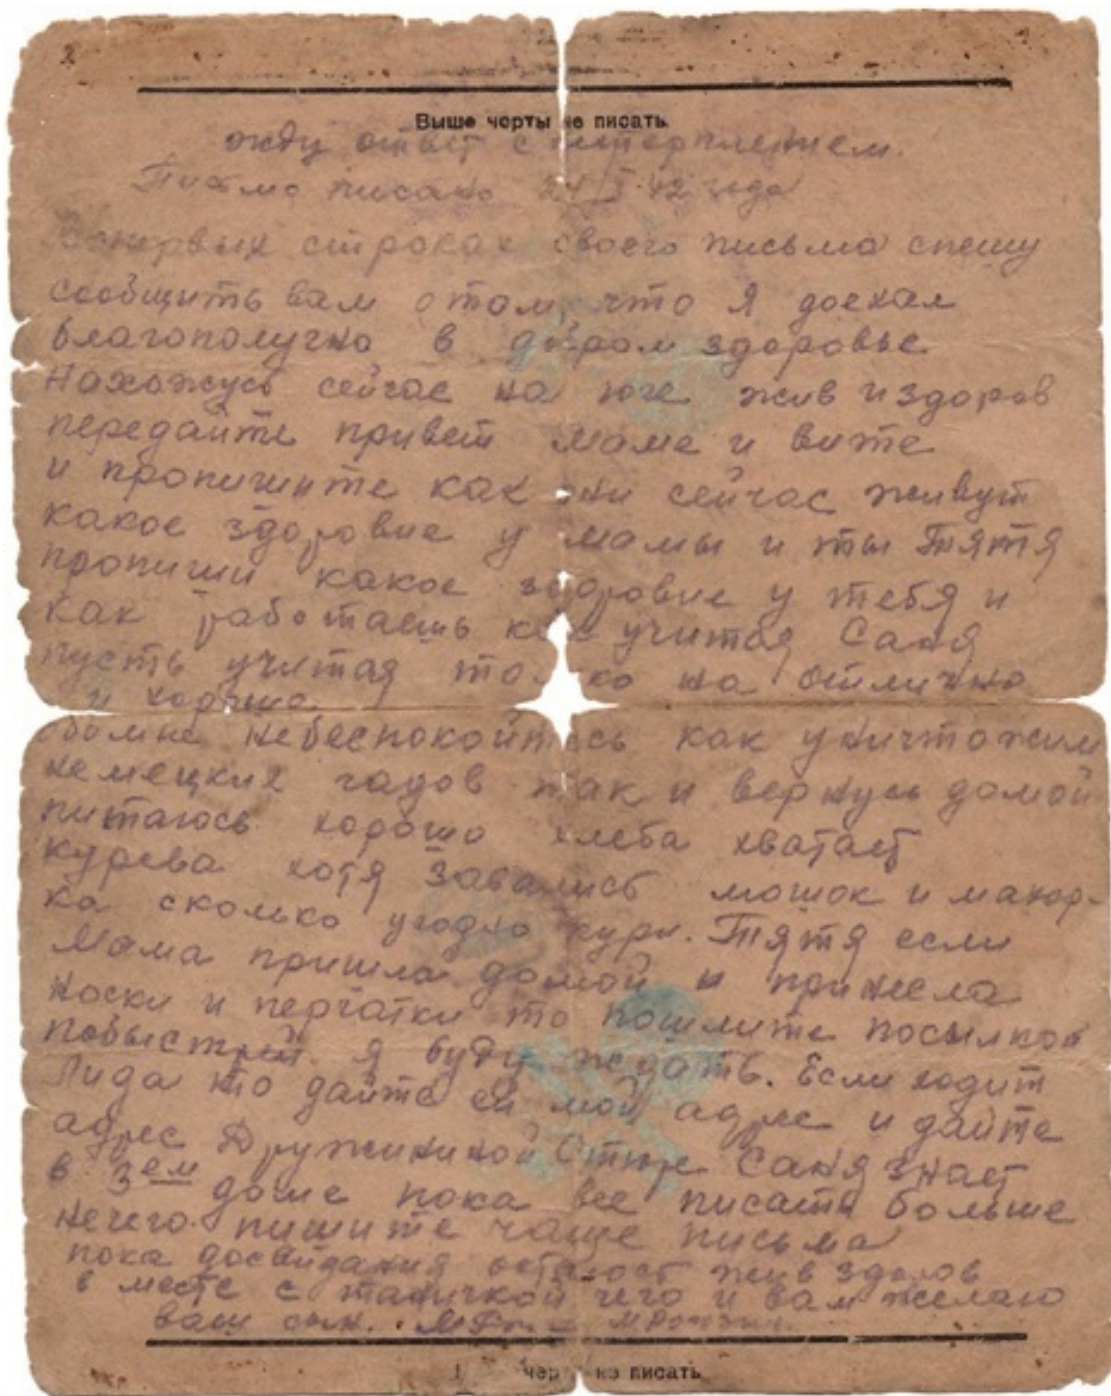 Выше черты не писать
жду ответ с нетерпением.
Письмо писано 42 года
первых строках своего письма спешу
сообщить вам о том, что я доехал
благополучно в добром здоровье.
Нахожусь сейчас на юге жив и здоров
передайте привет маме и вите
и пропишите как они сейчас живут
какое здоровие у мамы и ты Тятя
пропиши какое здоровие у тебя и
как работаешь как учитая Саня
пусть учитая только на отлично
и хорошо
обомне небеспокойтесь как уничтожим
немецких гадов так и вернусь домой
питаюсь хорошо хлеба хватает
курева хотя завались мошок и махор-
ка сколько угодно кури. Тятя если
Мама пришла домой и принесла
носки и перчатки то пошлите посылкой
побыстрей я буду ждать. Если ходит
Лида то дайте ей мой адрес и дайте
адрес Дружининой Стюре Саня знает
в 3ем доме пока все писать больше
нечего пишите чаще письма
пока досвидания остаюсь жив здоров
в месте с чего и вам желаю
ваш сын.
черты не писать